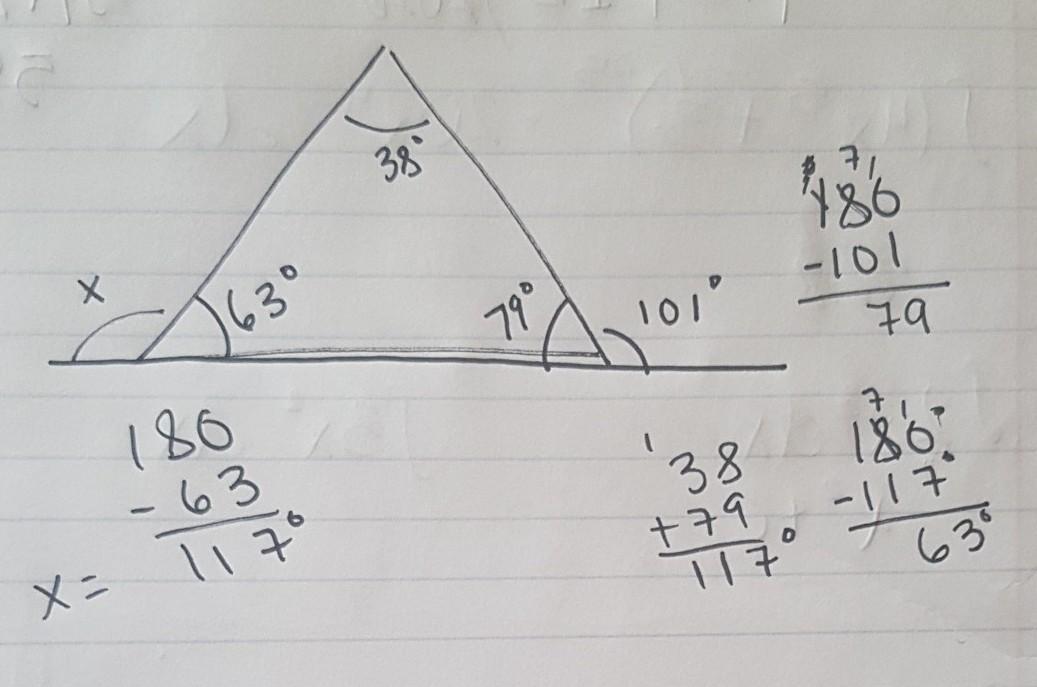 38°
x
63°
79°
101°
7 1
180
-101
79
180
- 63
117°
x =
1
38
+79
117°
7 1
180°
-117
63°